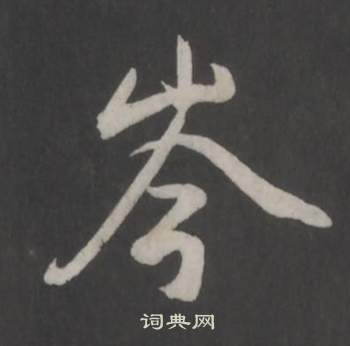 岑
词典网